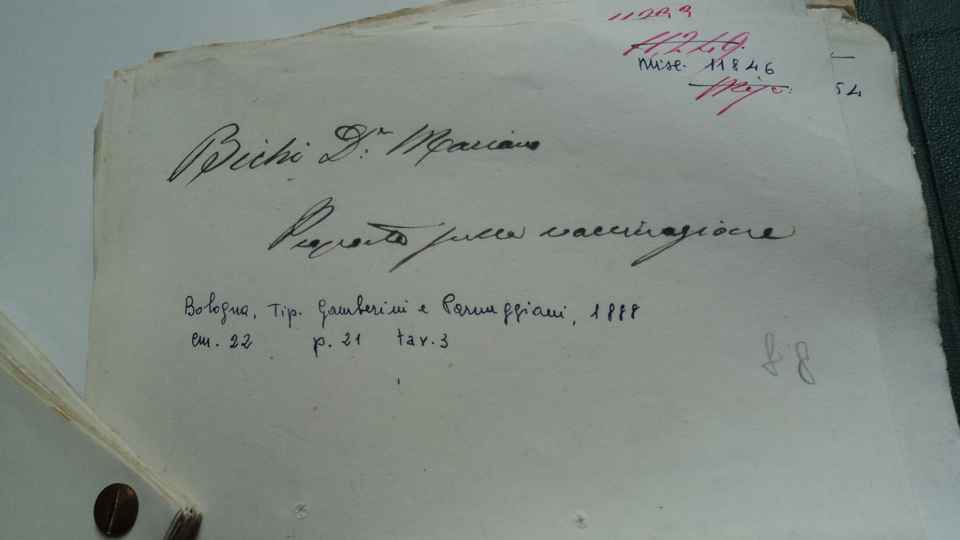 11233
11240.
Misc. 11846
Misc. 54
Bichi D.r Mariano
Proposta sulla vaccinazione
Bologna, Tip. Gamberini e Parmeggiani, 1888
cm. 22 p. 21 tav. 3